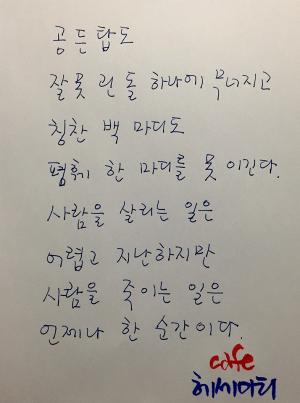 공든탑도
잘못 괸 돌 하나에 무너지고
칭찬 백 마디도
혐휵 한 마디를 못 이긴다.
사람을 살리는 일은
어렵고 지난하지만
사람을 죽이는 일은
언제나 한 순간이다.
cafe
헤세마티